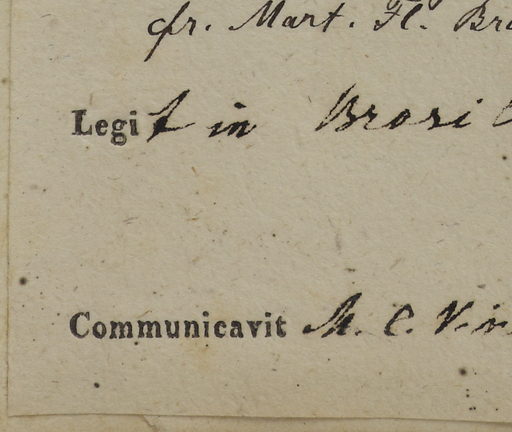 cfr. Mart. Fl. Br
Legit in Brasi
Communicavit M. C. Vin